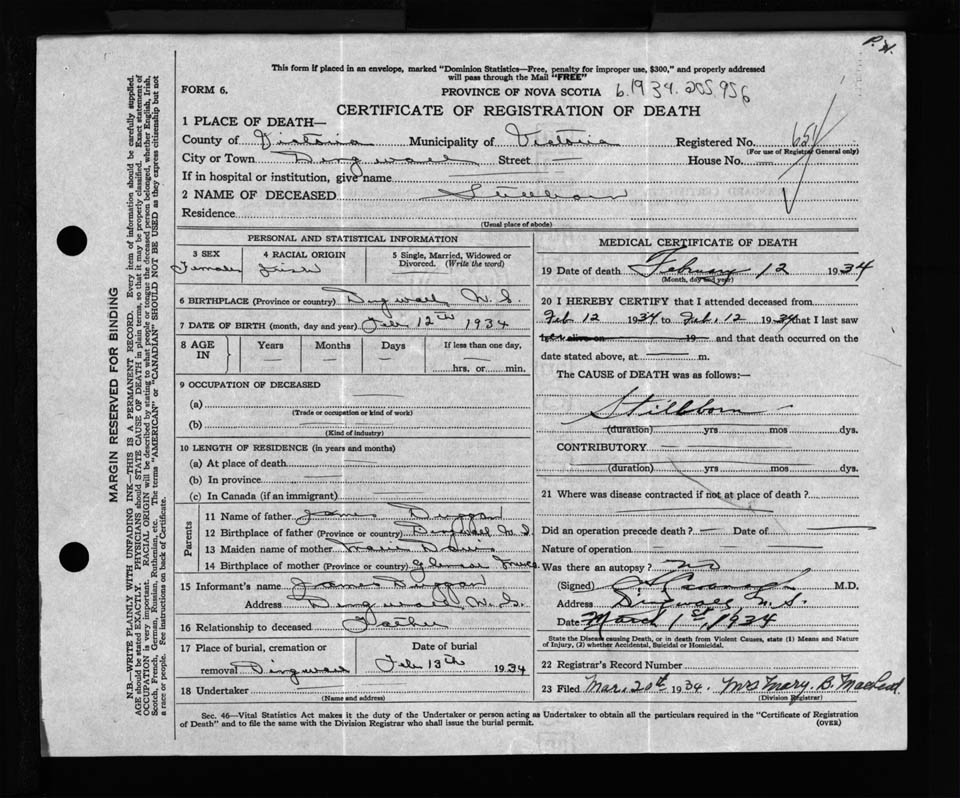 P.H.
This form if placed in an envelope, marked "Dominion Statistics—Free, penalty for improper use, $300," and properly addressed
will pass through the Mail "FREE"
FORM 6. PROVINCE OF NOVA SCOTIA 6.1934.205956
CERTIFICATE OF REGISTRATION OF DEATH
1 PLACE OF DEATH—
County of Victoria Municipality of Victoria Registered No. 651
(For use of Registrar General only)
City or Town Dingwall Street — House No. —
If in hospital or institution, give name
2 NAME OF DECEASED Stillborn
Residence
(Usual place of abode)
PERSONAL AND STATISTICAL INFORMATION
3 SEX 4 RACIAL ORIGIN 5 Single, Married, Widowed or
Divorced. (Write the word)
Female Irish
6 BIRTHPLACE (Province or country) Dingwall, N.S.
7 DATE OF BIRTH (month, day and year) Feb 12th 1934
8 AGE IN Years Months Days If less than one day,
hrs. or min.
9 OCCUPATION OF DECEASED
(a)
(Trade or occupation or kind of work)
(b)
(Kind of industry)
10 LENGTH OF RESIDENCE (in years and months)
(a) At place of death
(b) In province
(c) In Canada (if an immigrant)
Parents
11 Name of father James Duggan
12 Birthplace of father (Province or country) Dingwall N.S.
13 Maiden name of mother
14 Birthplace of mother (Province or country)
15 Informant's name James Duggan
Address Dingwall, N.S.
16 Relationship to deceased Father
17 Place of burial, cremation or Date of burial
removal Dingwall Feb 13th 1934
18 Undertaker
(Name and address)
MEDICAL CERTIFICATE OF DEATH
19 Date of death February 12 1934
(Month, day and year)
20 I HEREBY CERTIFY that I attended deceased from
Feb 12 1934 to Feb. 12 1934 that I last saw
h alive on 19 and that death occurred on the
date stated above, at — m.
The CAUSE of DEATH was as follows:—
Stillborn
(duration) yrs mos dys.
CONTRIBUTORY
(duration) yrs mos dys.
21 Where was disease contracted if not at place of death?
Did an operation precede death? — Date of —
Nature of operation
Was there an autopsy? No
(Signed) M.D.
Address Dingwall N.S.
Date March 1st, 1934
State the Disease causing Death, or in death from Violent Causes, state (1) Means and Nature
of Injury, (2) whether Accidental, Suicidal or Homicidal.
22 Registrar's Record Number
23 Filed Mar. 20th 1934. Mrs Mary B. MacLeod
(Division Registrar)
Sec. 46—Vital Statistics Act makes it the duty of the Undertaker or person acting as Undertaker to obtain all the particulars required in the "Certificate of Registration
of Death" and to file the same with the Division Registrar who shall issue the burial permit. (OVER)
MARGIN RESERVED FOR BINDING
N.B.—WRITE PLAINLY WITH UNFADING INK—THIS IS A PERMANENT RECORD. Every item of information should be carefully supplied.
AGE should be stated EXACTLY. PHYSICIANS should STATE CAUSE OF DEATH in plain terms, so that it may be properly classified. Exact statement of
OCCUPATION is very important. RACIAL ORIGIN will be described by stating to what people or tongue the deceased person belonged, whether English, Irish,
Scotch, French, German, Russian, Ruthenian, etc. The terms "AMERICAN" or "CANADIAN" SHOULD NOT BE USED as they express citizenship but not
a race or people. See instructions on back of Certificate.